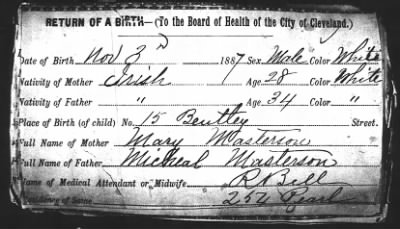 RETURN OF A BIRTH—(To the Board of Health of the City of Cleveland.)
Date of Birth Nov 3d 1887 Sex Male Color White
Nativity of Mother Irish Age 28 Color White
Nativity of Father " Age 34 Color "
Place of Birth (of child) No. 15 Bentley Street.
Full Name of Mother Mary Masterson
Full Name of Father Micheal Masterson
Name of Medical Attendant or Midwife R Bell
Residence of Same 254 Pearl